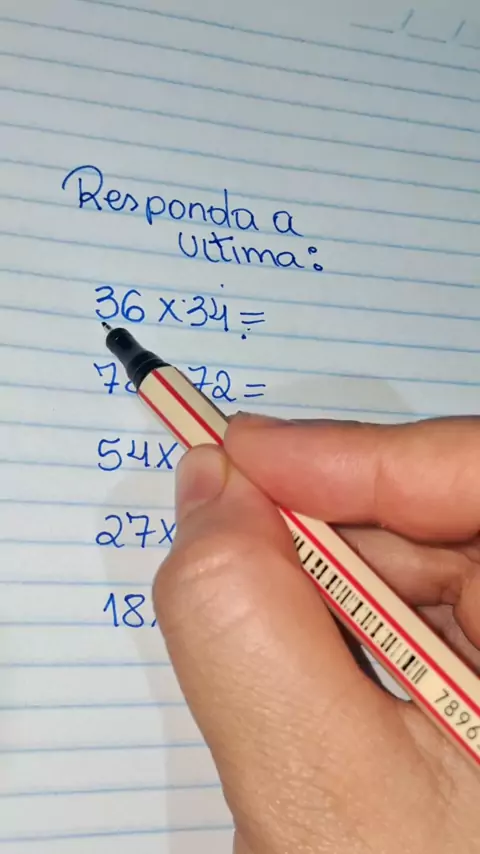 Responda a
ultima:
36 x 34 =
72 =
54x
27x
18
7896